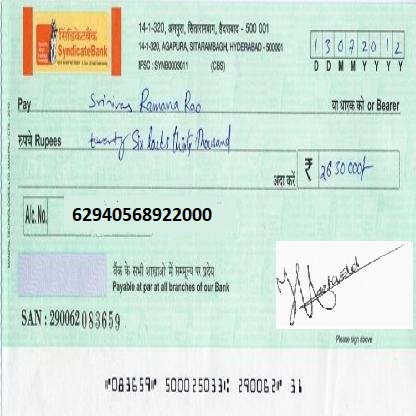 सिंडिकेटबैंक
SyndicateBank
14-1-320, अगपुरा, सितारामबाग, हैदराबाद - 500 001
14-1-320, AGAPURA, SITARAMBAGH, HYDERABAD -500001
IFSC : SYNB0003011 (CBS)
1 3 0 7 2 0 1 2
D D M M Y Y Y Y
Pay Srinivas Ramana Rao या धारक को or Bearer
रुपये Rupees twenty Six lacks thirty thousand
अदा करें ₹ 2630000/-
A/c. No. 62940568922000
बैंक के सभी शाखाओं में सममूल्य पर प्रदेय
Payable at par at all branches of our Bank
SAN : 290062 083659
Please sign above
⑈083659⑈ 500025033⑆ 290062⑈ 31